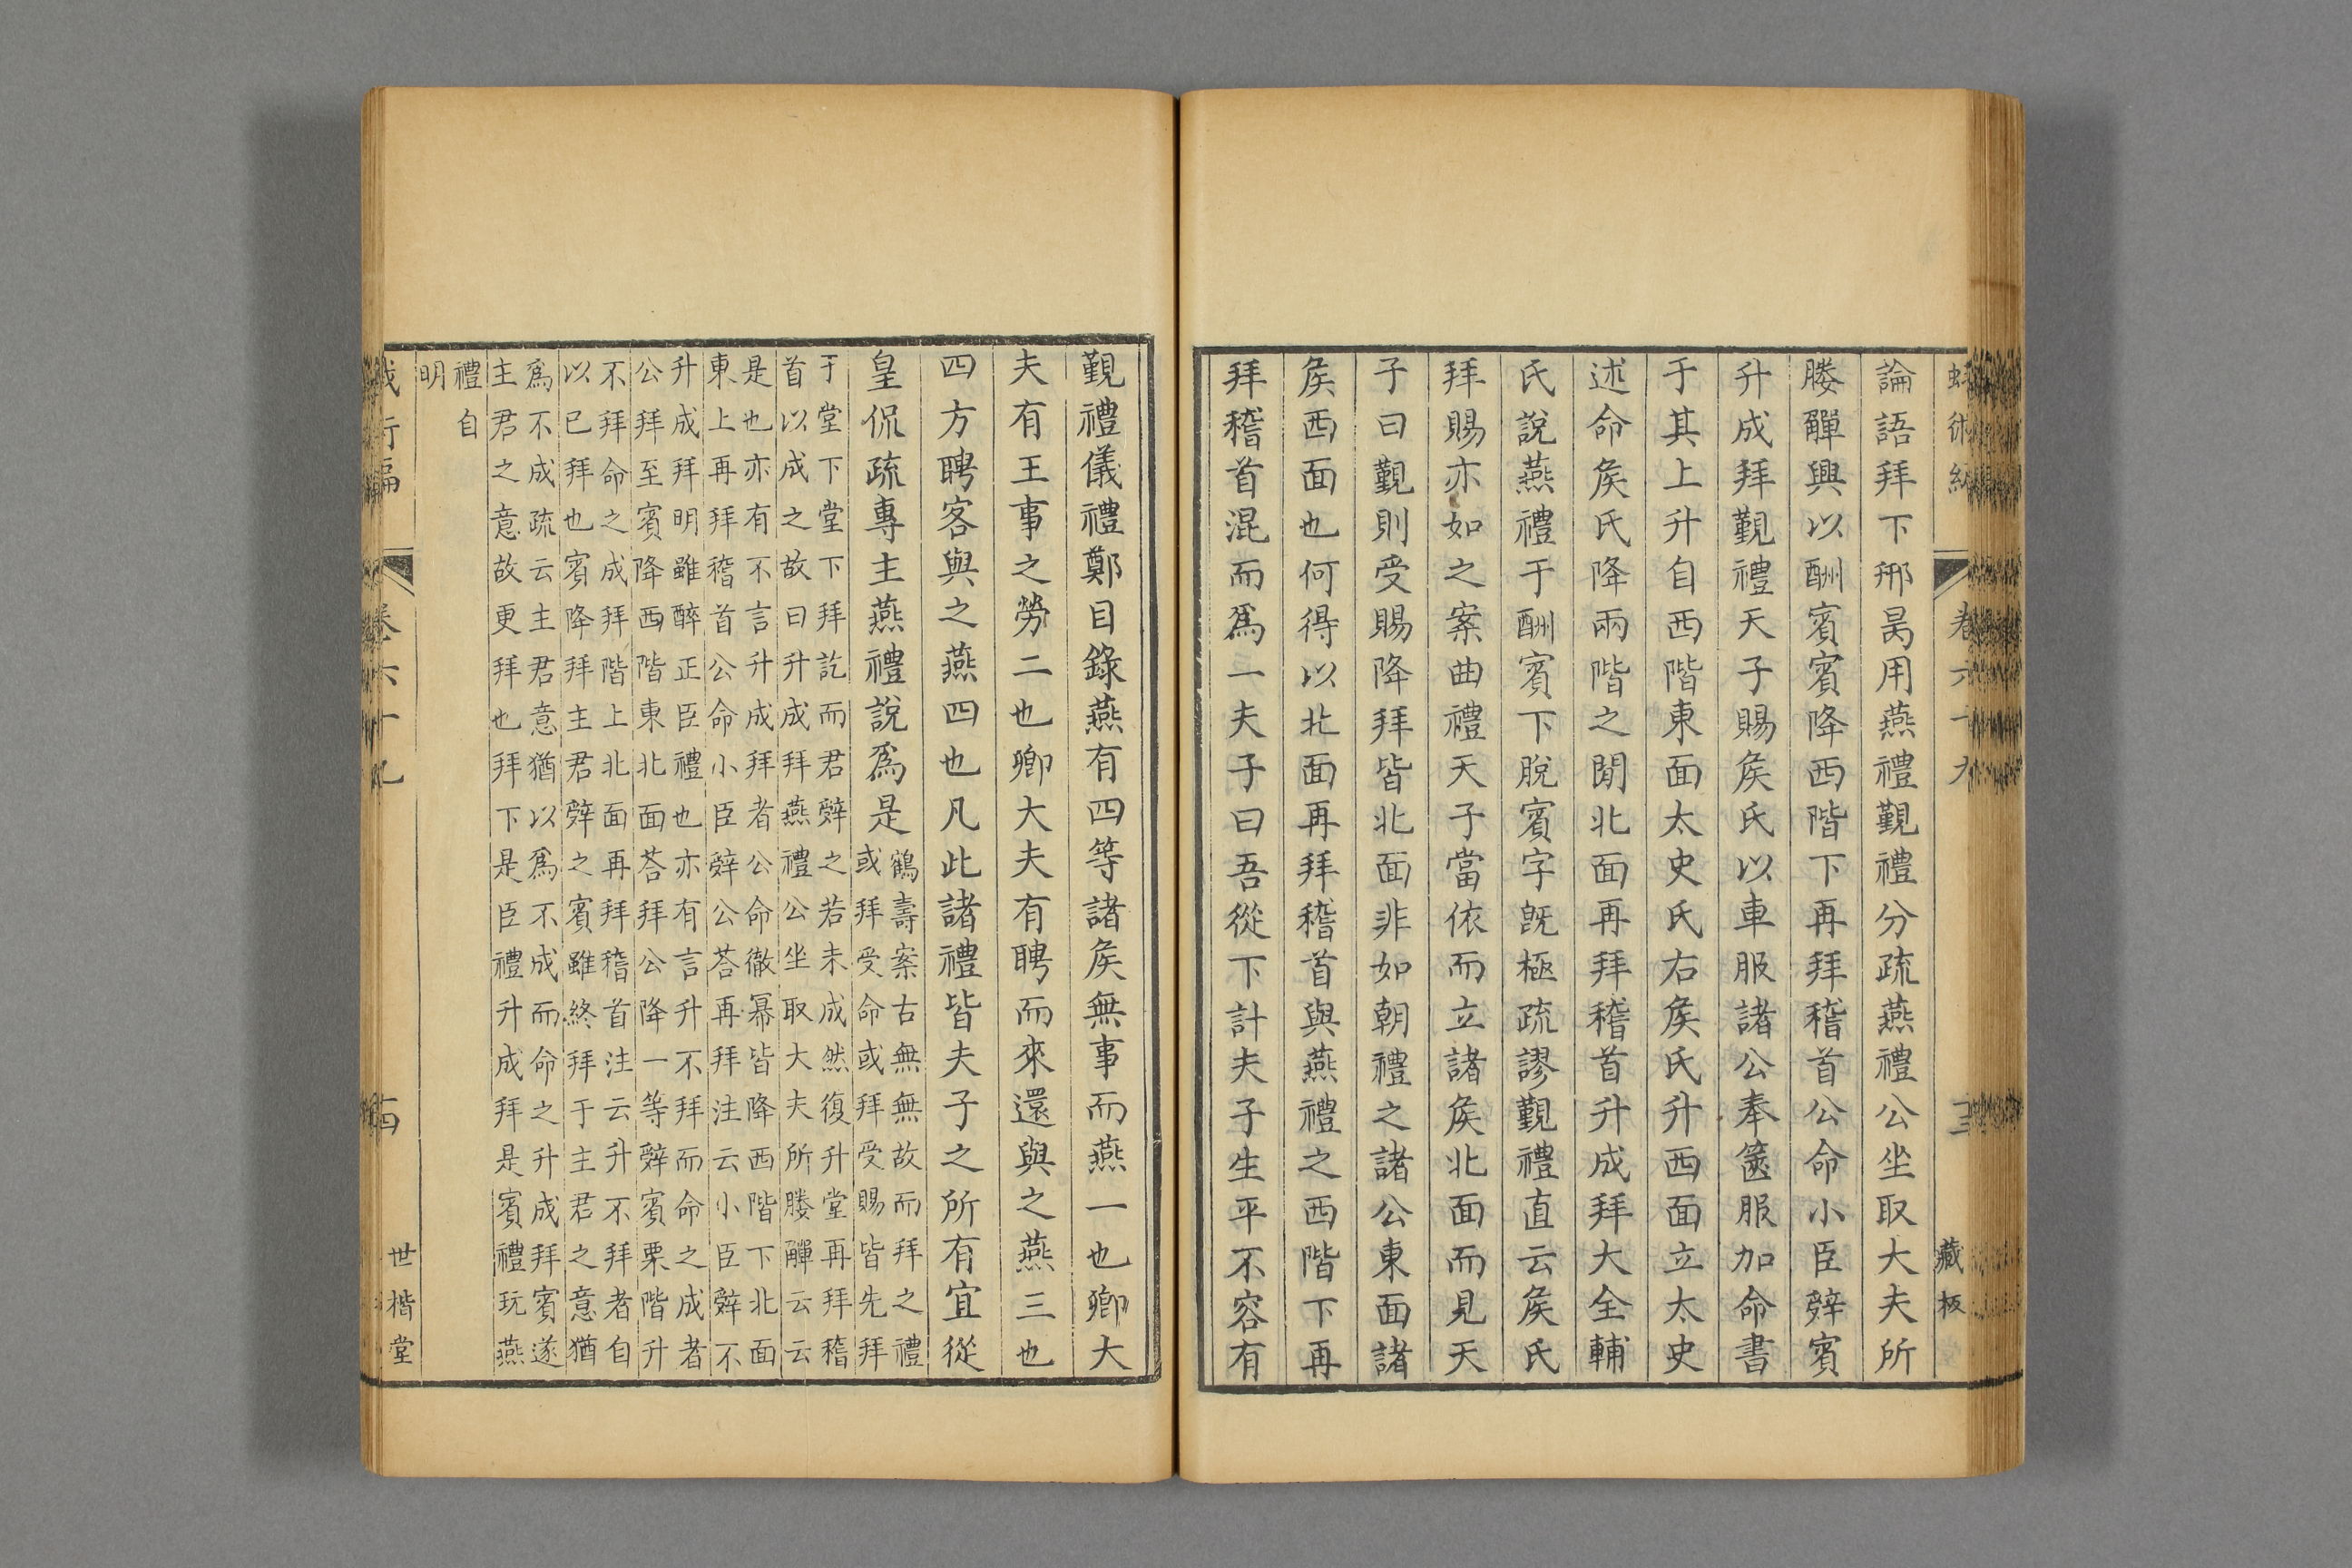 論語拜下邢昺用燕禮覲禮分疏燕禮公坐取大夫所
媵觶興以酬賓賓降西階下再拜稽首公命小臣辤賓
升成拜覲禮天子賜矦氏以車服諸公奉篋服加命書
于其上升自西階東面太史氏右矦氏升西面立太史
述命矦氏降兩階之閒北面再拜稽首升成拜大全輔
氏說燕禮于酬賓下脫賓字旣極疏謬覲禮直云矦氏
拜賜亦如之案曲禮天子當依而立諸矦北面而見天
子曰覲則受賜降拜皆北面非如朝禮之諸公東面諸
矦西面也何得以北面再拜稽首與燕禮之西階下再
拜稽首混而爲一夫子曰吾從下計夫子生平不容有
藏板
覲禮儀禮鄭目錄燕有四等諸矦無事而燕一也卿大
夫有王事之勞二也卿大夫有聘而來還與之燕三也
四方聘客與之燕四也凡此諸禮皆夫子之所有宜從
皇侃疏專主燕禮說爲是
鶴壽案古無無故而拜之禮
或拜受命或拜受賜皆先拜
于堂下堂下拜訖而君辤之若未成然復升堂再拜稽
首以成之故曰升成拜燕禮公坐取大夫所媵觶云云
是也亦有不言升成拜者公命徹冪皆降西階下北面
東上再拜稽首公命小臣辤公荅再拜注云小臣辤不
升成拜明雖醉正臣禮也亦有言升不拜而命之成者
公拜至賓降西階東北面荅拜公降一等辤賓栗階升
不拜命之成拜階上北面再拜稽首注云升不拜者自
以已拜也賓降拜主君辤之賓雖終拜于主君之意猶
爲不成疏云主君意猶以爲不成而命之升成拜賓遂
主君之意故更拜也拜下是臣禮升成拜是賓禮玩燕
禮自
明
卷六十九
世楷堂